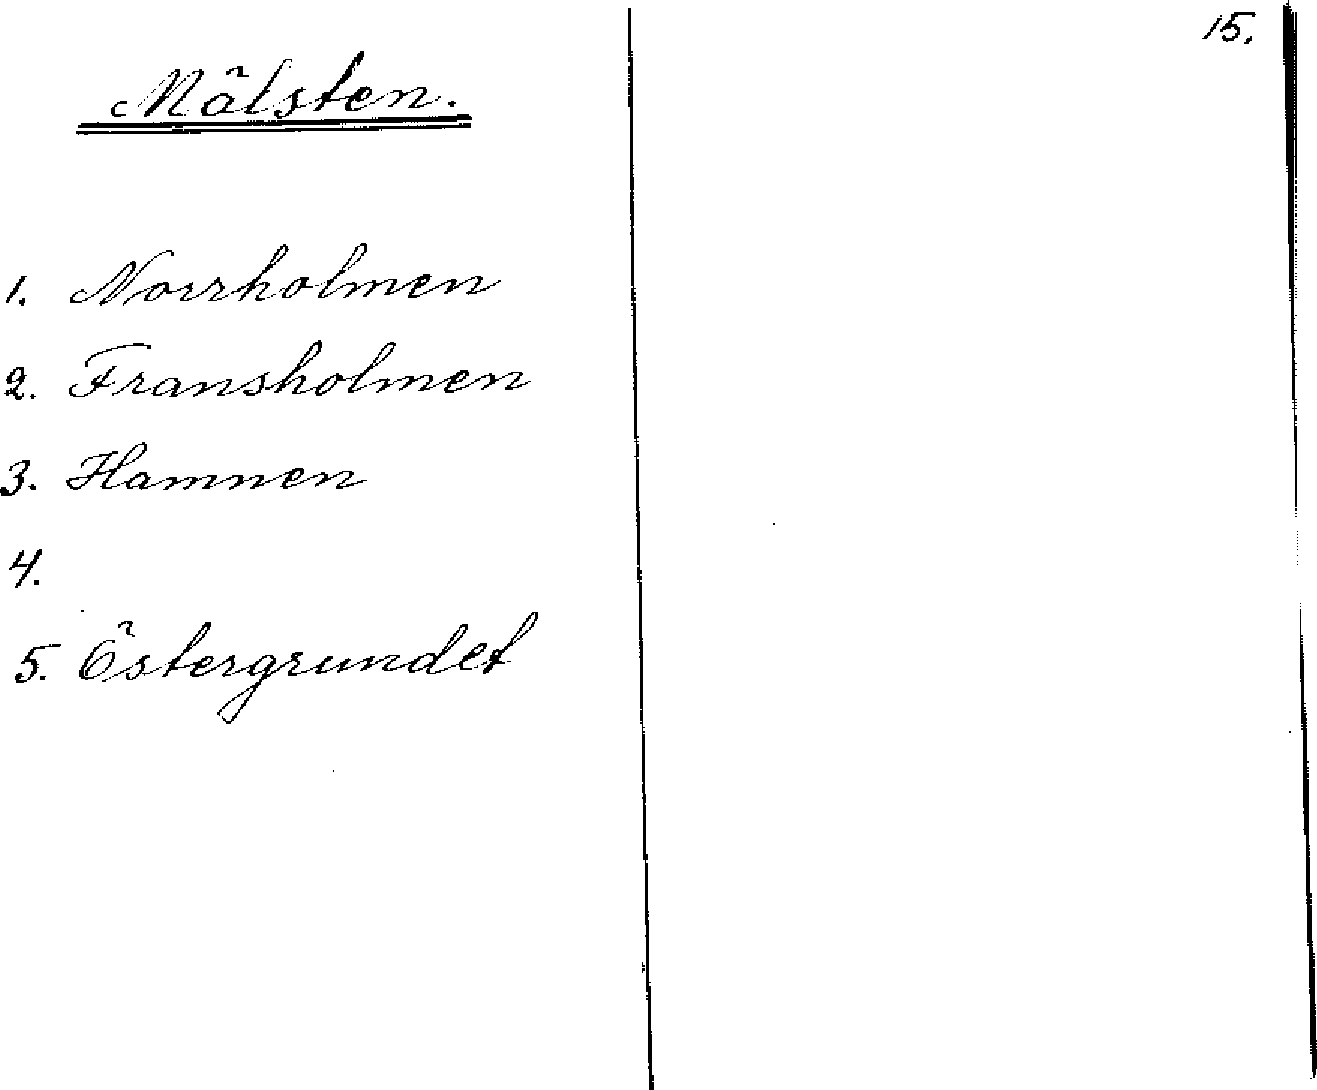 15.
Mälsten.
1. Norrholmen
2. Fransholmen
3. Hamnen
4.
5. Östergrundet